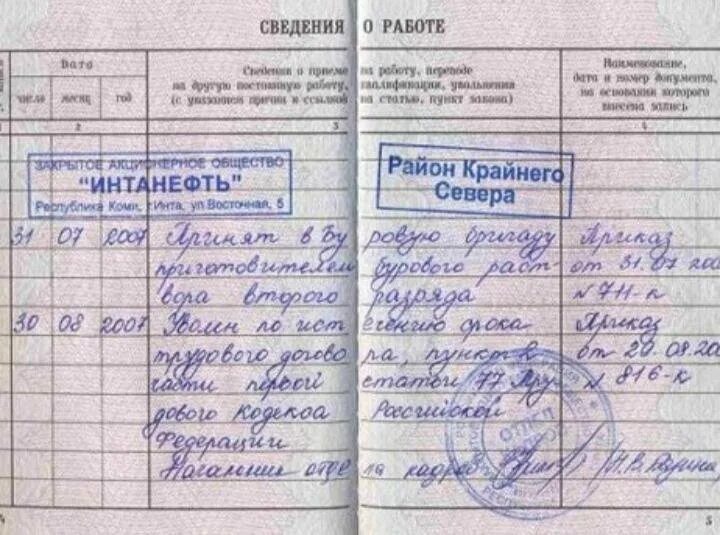 СВЕДЕНИЯ О РАБОТЕ
Дата
Сведения о приеме на работу, переводе
на другую постоянную работу, квалификации, увольнении
(с указанием причин и ссылкой на статью, пункт закона)
Наименование,
дата и номер документа,
на основании которого
внесена запись
число месяц год
2 3 4
ЗАКРЫТОЕ АКЦИОНЕРНОЕ ОБЩЕСТВО
"ИНТАНЕФТЬ"
Республика Коми, г.Инта, ул.Восточная, 5
Район Крайнего
Севера
31 07 2007 Принят в Бу ровую бригаду Приказ
приготовителем бурового раст- от 31.07 200
вора второго разряда № 711-к
30 08 2007 Уволен по ист ечению срока Приказ
трудового догово ра, пункт 2 от 20.08.20
части первой статьи 77 Тру- № 816-к
дового Кодекса Российской
Федерации
Начальник отде ла кадров
ОТДЕЛ
КАДРОВ
5